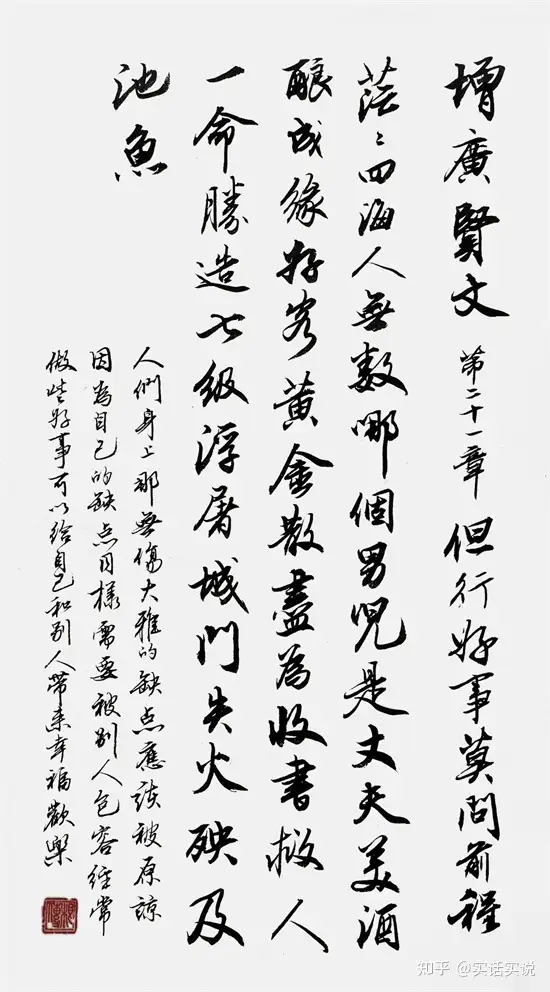 增廣賢文 第二十一章 但行好事莫問前程
茫々四海人無数哪個男児是丈夫美酒
釀成緣好客黄金散盡為收書救人
一命勝造七级浮屠城門失火殃及
池魚
人們身上那無傷大雅的缺点應該被原諒
因為自己的缺点同樣需要被别人包容经常
做些好事可以给自己和别人带来幸福歡樂
知乎 @实话实说